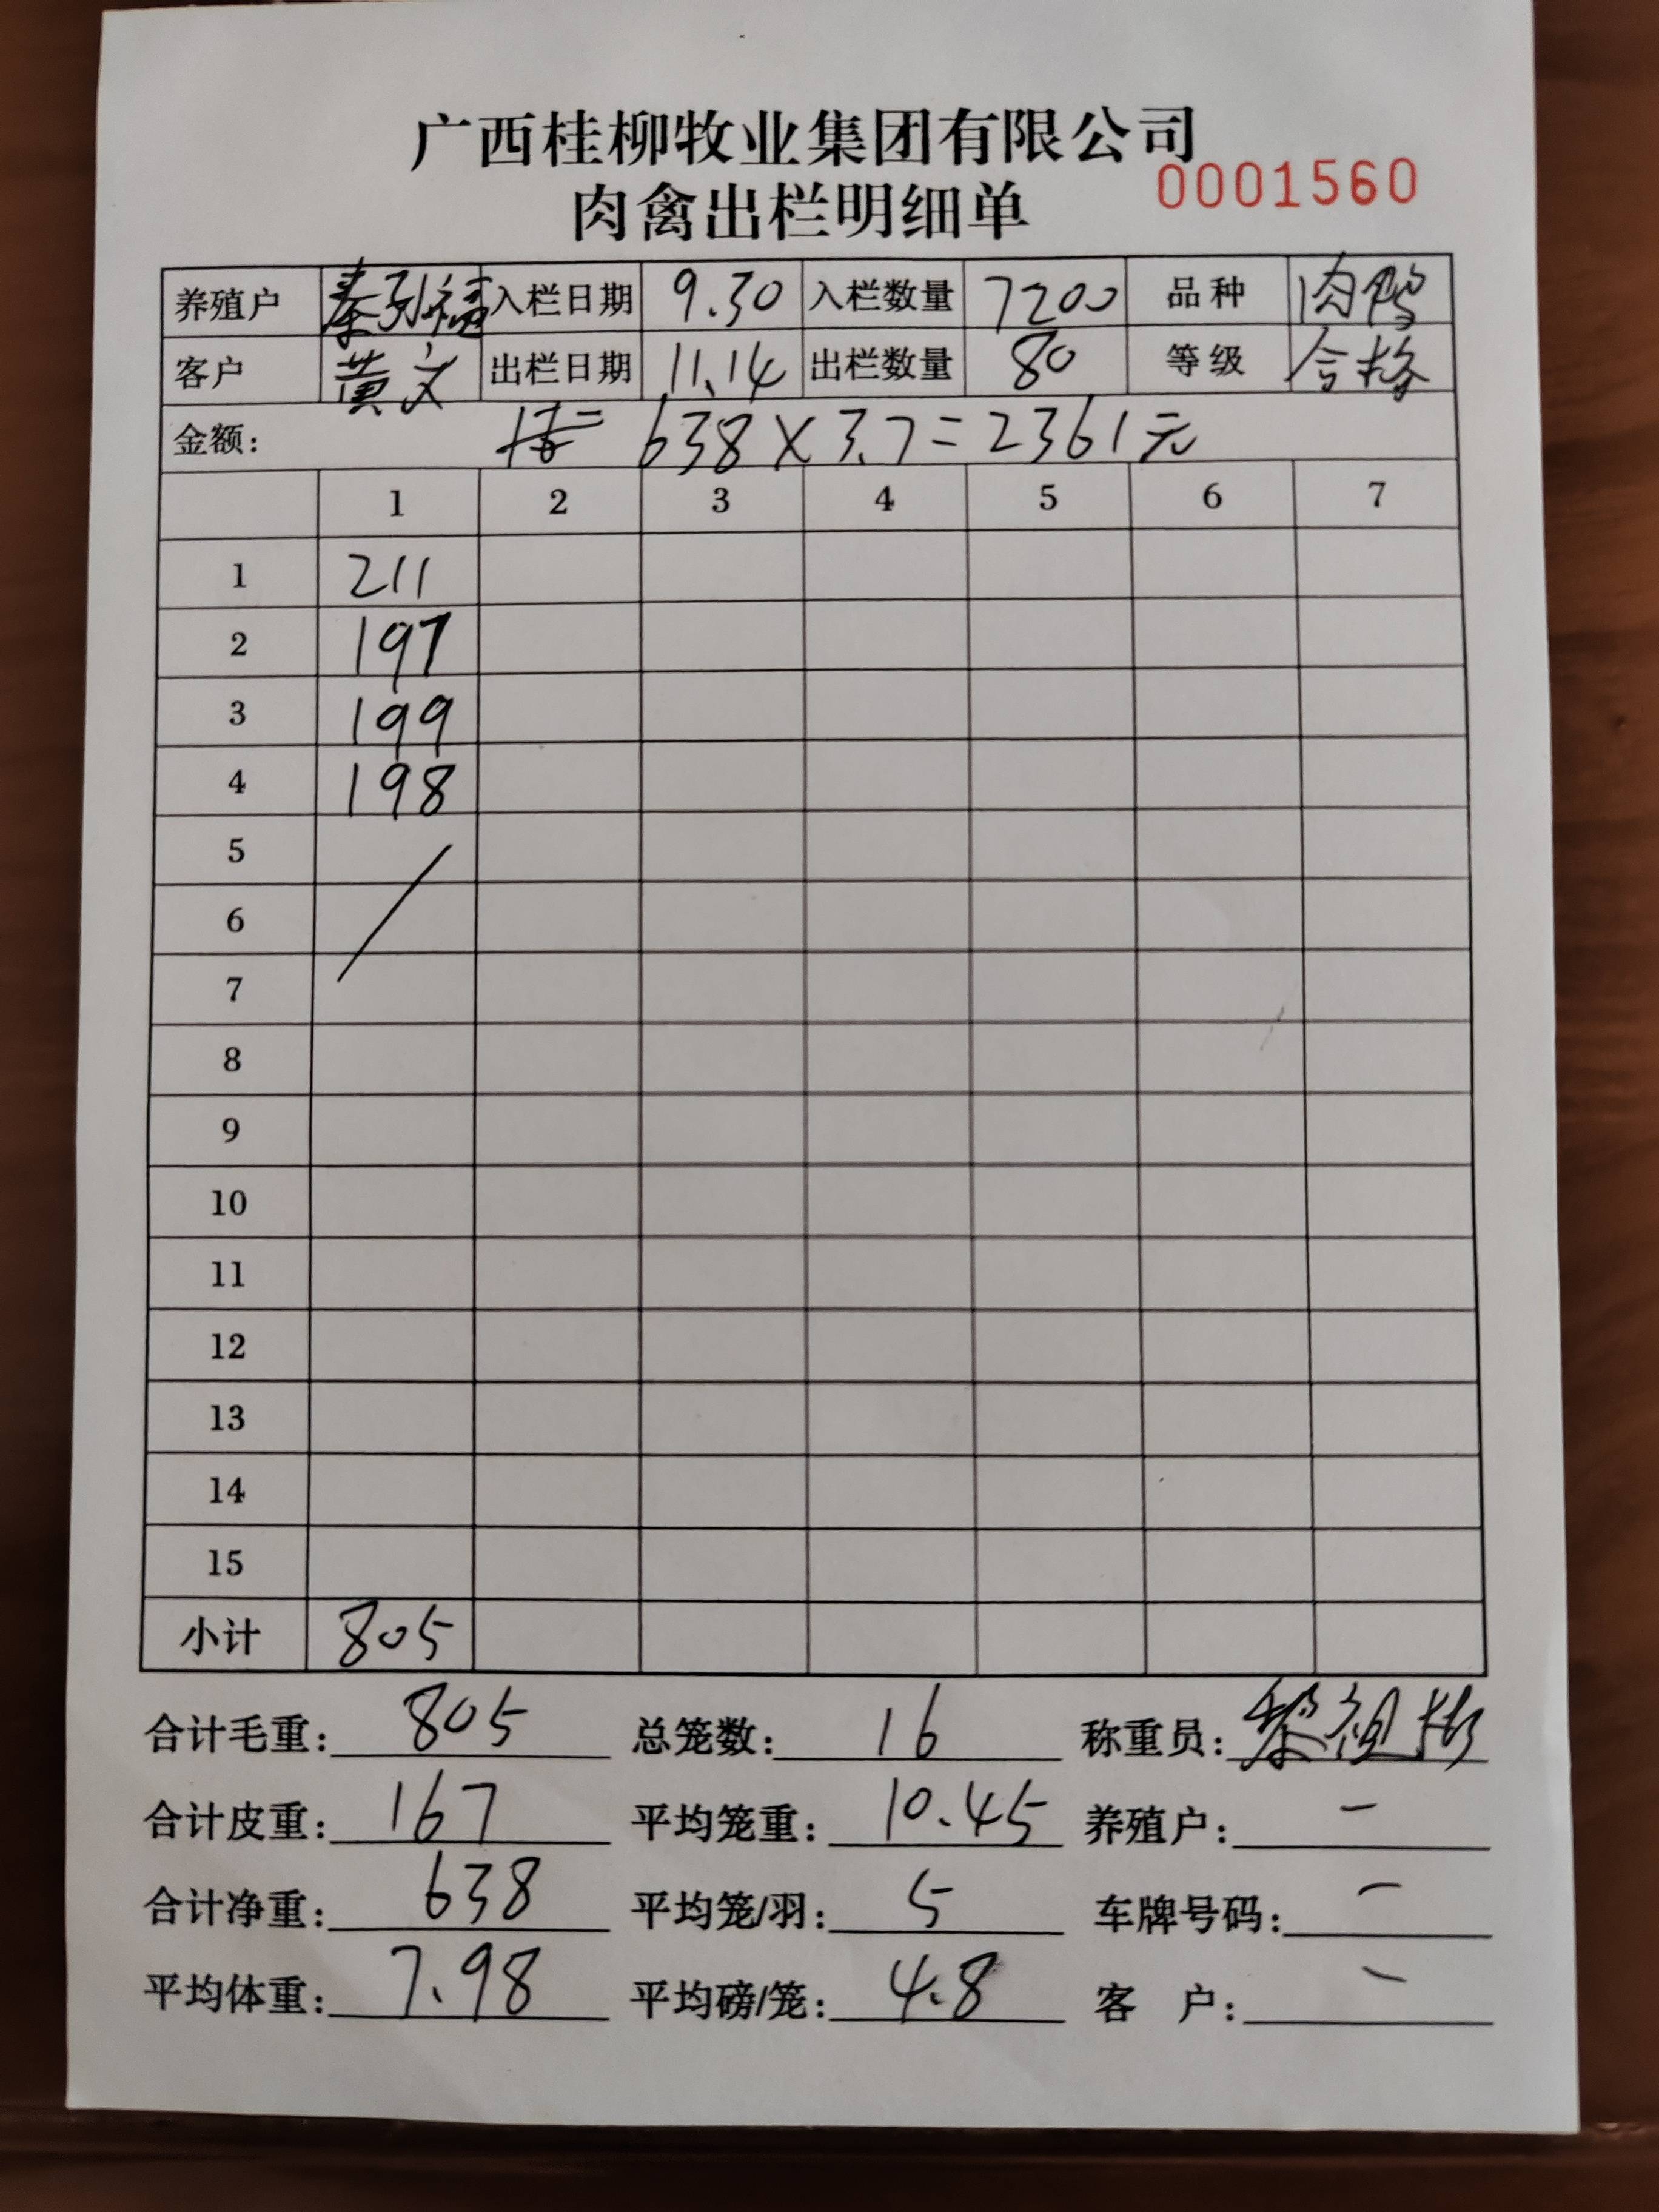 广西桂柳牧业集团有限公司
肉禽出栏明细单 0001560
养殖户 秦引福 入栏日期 9.30 入栏数量 7200 品种 肉鸭
客户 黄文 出栏日期 11.14 出栏数量 80 等级 合格
金额: 638×3.7=2361元
1 2 3 4 5 6 7
1 211
2 197
3 199
4 198
5
6
7
8
9
10
11
12
13
14
15
小计 805
合计毛重: 805 总笼数: 16 称重员:
合计皮重: 167 平均笼重: 10.45 养殖户: -
合计净重: 638 平均笼/羽: 5 车牌号码: -
平均体重: 7.98 平均磅/笼: 4.8 客 户: -